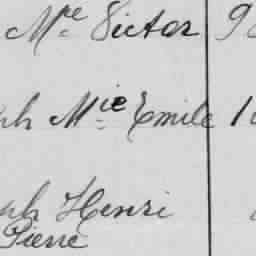 Mie Victor 9
ph Mie Emile 1
ph Henri
Pierre